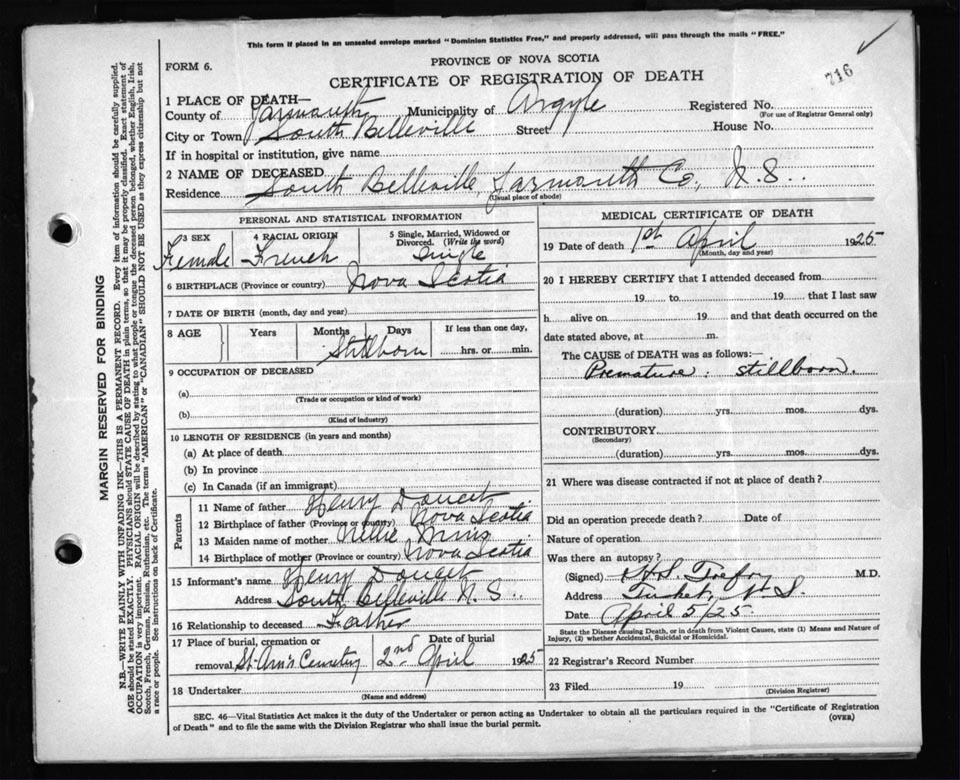 This form if placed in an unsealed envelope marked "Dominion Statistics Free," and properly addressed, will pass through the mails "FREE."
716
FORM 6.
PROVINCE OF NOVA SCOTIA
CERTIFICATE OF REGISTRATION OF DEATH
1 PLACE OF DEATH—
County of Yarmouth Municipality of Argyle Registered No.
(For use of Registrar General only)
City or Town South Belleville Street House No.
If in hospital or institution, give name
2 NAME OF DECEASED
Residence South Belleville, Yarmouth Co., N.S.
(Usual place of abode)
PERSONAL AND STATISTICAL INFORMATION
3 SEX Female
4 RACIAL ORIGIN French
5 Single, Married, Widowed or Divorced. (Write the word) Single
6 BIRTHPLACE (Province or country) Nova Scotia
7 DATE OF BIRTH (month, day and year)
8 AGE Years Months Days If less than one day,
Stillborn hrs. or min.
9 OCCUPATION OF DECEASED
(a)
(Trade or occupation or kind of work)
(b)
(Kind of industry)
10 LENGTH OF RESIDENCE (in years and months)
(a) At place of death
(b) In province
(c) In Canada (if an immigrant)
Parents
11 Name of father Henry Doucet
12 Birthplace of father (Province or country) Nova Scotia
13 Maiden name of mother Nellie
14 Birthplace of mother (Province or country) Nova Scotia
15 Informant's name Henry Doucet
Address South Belleville N.S.
16 Relationship to deceased Father
17 Place of burial, cremation or Date of burial
removal St. Ann's Cemetery 2nd April 1925
18 Undertaker
(Name and address)
MEDICAL CERTIFICATE OF DEATH
19 Date of death 1st April 1925
(Month, day and year)
20 I HEREBY CERTIFY that I attended deceased from
19 to 19 that I last saw
h alive on 19 and that death occurred on the
date stated above, at m.
The CAUSE of DEATH was as follows:—
Premature: stillborn.
(duration) yrs. mos. dys.
CONTRIBUTORY
(Secondary)
(duration) yrs. mos. dys.
21 Where was disease contracted if not at place of death?
Did an operation precede death? Date of
Nature of operation
Was there an autopsy?
(Signed) M.D.
Address Tusket, N.S.
Date April 5/25
State the Disease causing Death, or in death from Violent Causes, state (1) Means and Nature of
Injury, (2) whether Accidental, Suicidal or Homicidal.
22 Registrar's Record Number
23 Filed 19
(Division Registrar)
SEC. 46—Vital Statistics Act makes it the duty of the Undertaker or person acting as Undertaker to obtain all the particulars required in the "Certificate of Registration
of Death" and to file the same with the Division Registrar who shall issue the burial permit. (OVER)
MARGIN RESERVED FOR BINDING
N.B.—WRITE PLAINLY WITH UNFADING INK—THIS IS A PERMANENT RECORD. Every item of information should be carefully supplied.
AGE should be stated EXACTLY. PHYSICIANS should STATE CAUSE OF DEATH in plain terms, so that it may be properly classified. Exact statement of
OCCUPATION is very important. RACIAL ORIGIN will be described by stating to what people or tongue the deceased person belonged, whether English, Irish,
Scotch, French, German, Russian, Ruthenian, etc. The terms "AMERICAN" or "CANADIAN" SHOULD NOT BE USED as they express citizenship but not
a race or people. See instructions on back of Certificate.